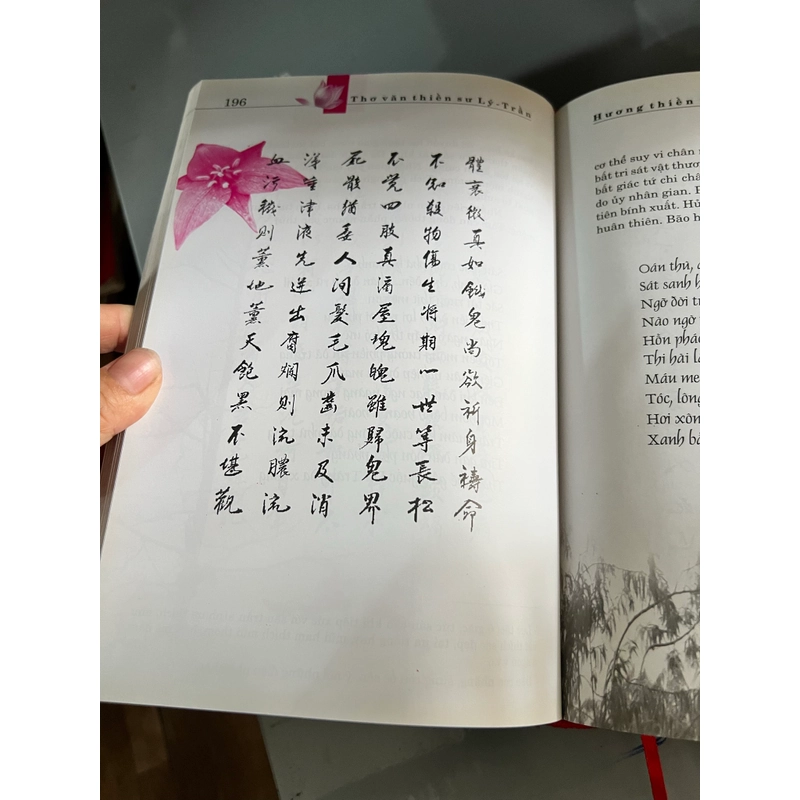 196 Thơ văn thiền sư Lý-Trần
體衰微真如餓鬼尚欲祈身禱命
不知殺物傷生将期一世等長松
不覺四肢真漏屋塊魄雖歸鬼界
死骸猶委人间髮毛爪齒未及消
涕唾津液先逆出腐爛則流膿流
血污穢則薰地薰天胞黑不堪觀
Hương thiền
cơ thể suy vi chân
bất tri sát vật thươ
bất giác tứ chi châ
do ủy nhân gian.
tiên bính xuất.
huân thiên. Bào
Oán thù,
Sát sanh
Ngỡ đời
Nào ngờ
Hồn phác
Thi hài
Máu me
Tóc, lông
Hơi xông
Xanh